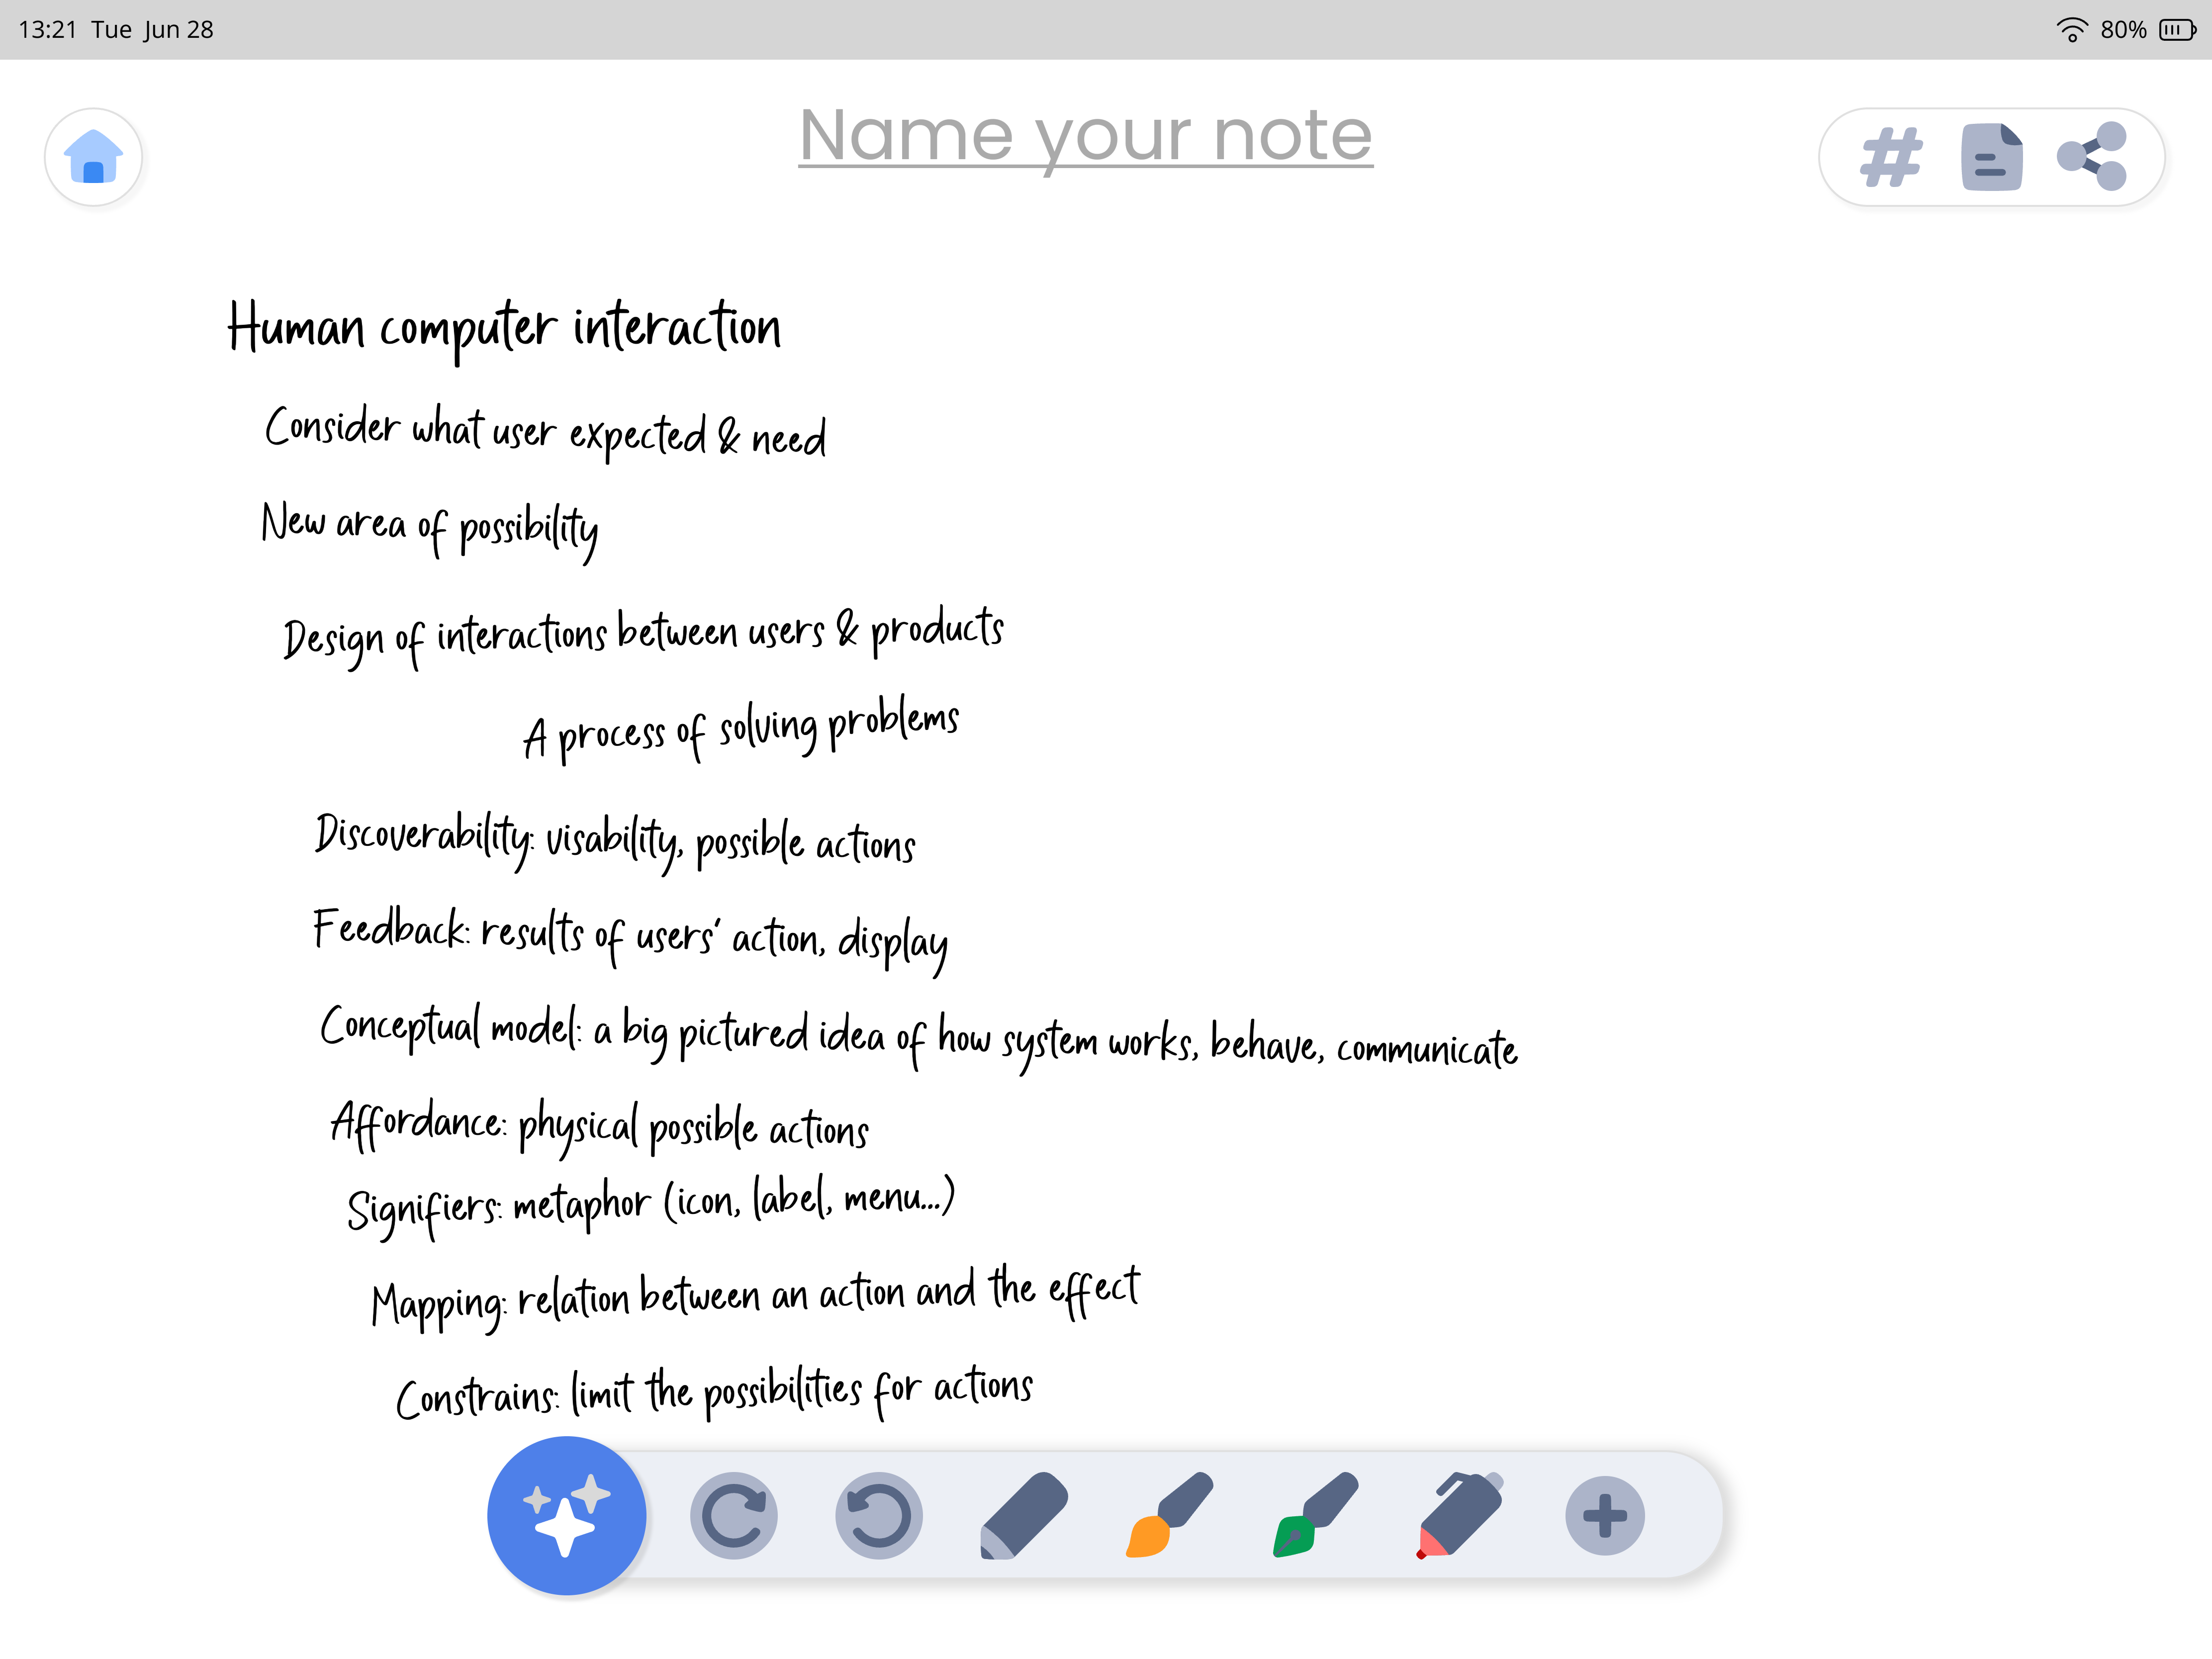 13:21 Tue Jun 28 80%
Name your note
Human computer interaction
Consider what user expected & need
New area of possibility
Design of interactions between users & products
A process of solving problems
Discoverability: visability, possible actions
Feedback: results of users' action, display
Conceptual model: a big pictured idea of how system works, behave, communicate
Affordance: physical possible actions
Signifiers: metaphor (icon, label, menu...)
Mapping: relation between an action and the effect
Constrains: limit the possibilities for actions